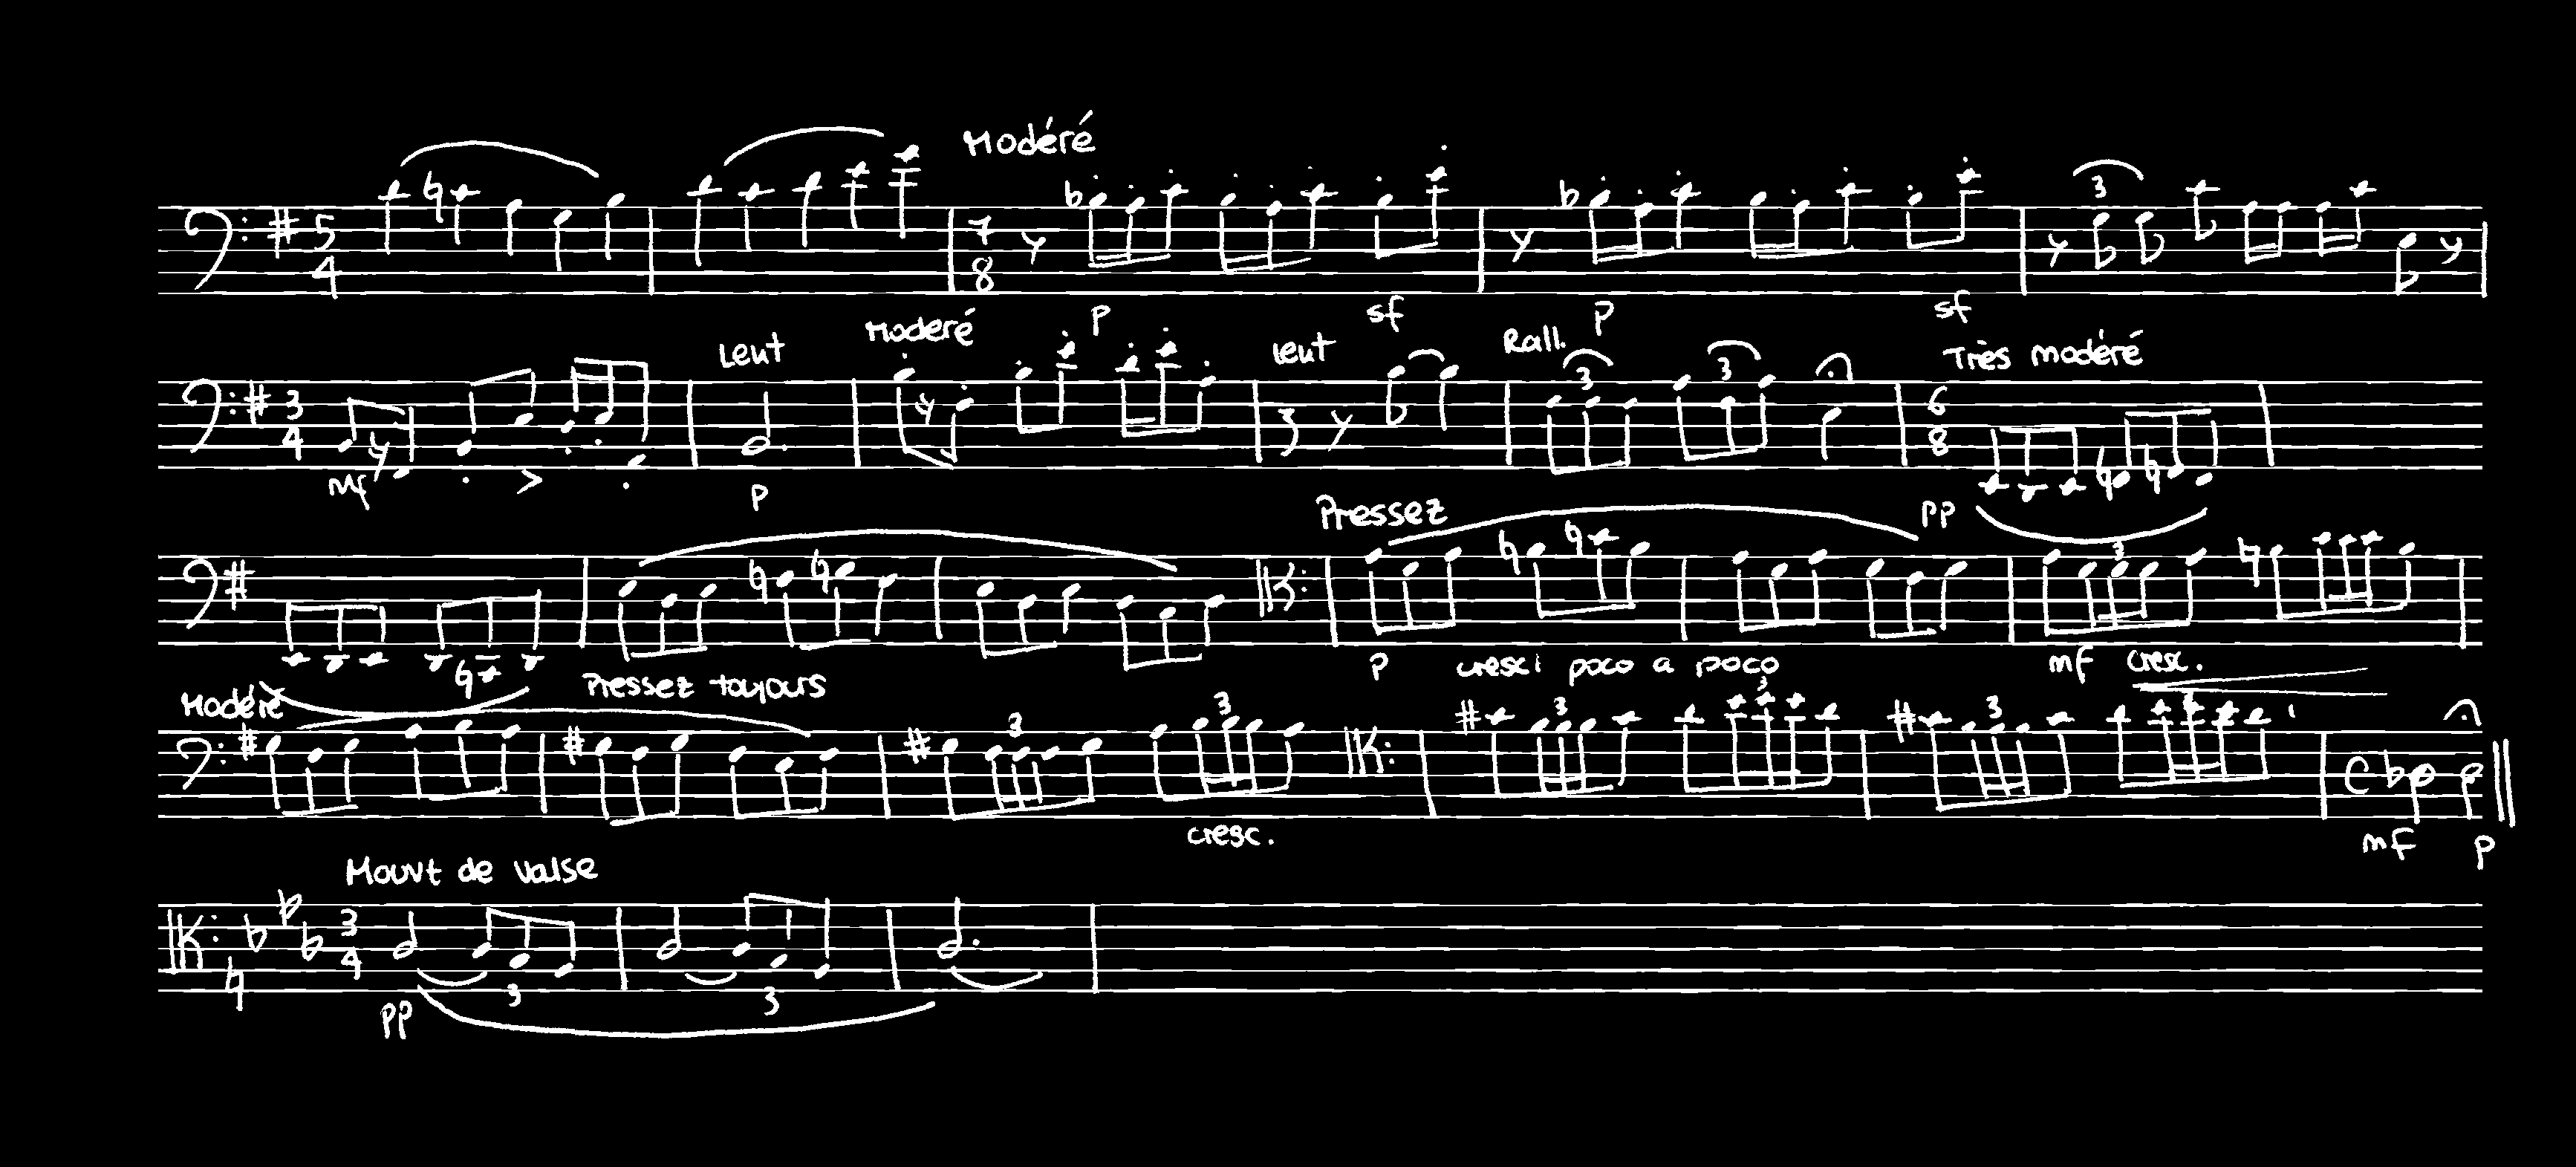 Modéré
5 4 7 8 3
p sf p sf
Lent Moderé lent Rall. Très modéré
3 4 3 3 6 8
mf p pp
Pressez
3
p cresci poco a poco mf cresc.
Modéré Pressez toujours
3 3 3 3 3 3
cresc. mf p
Mouvt de valse
3 4
pp 3 3